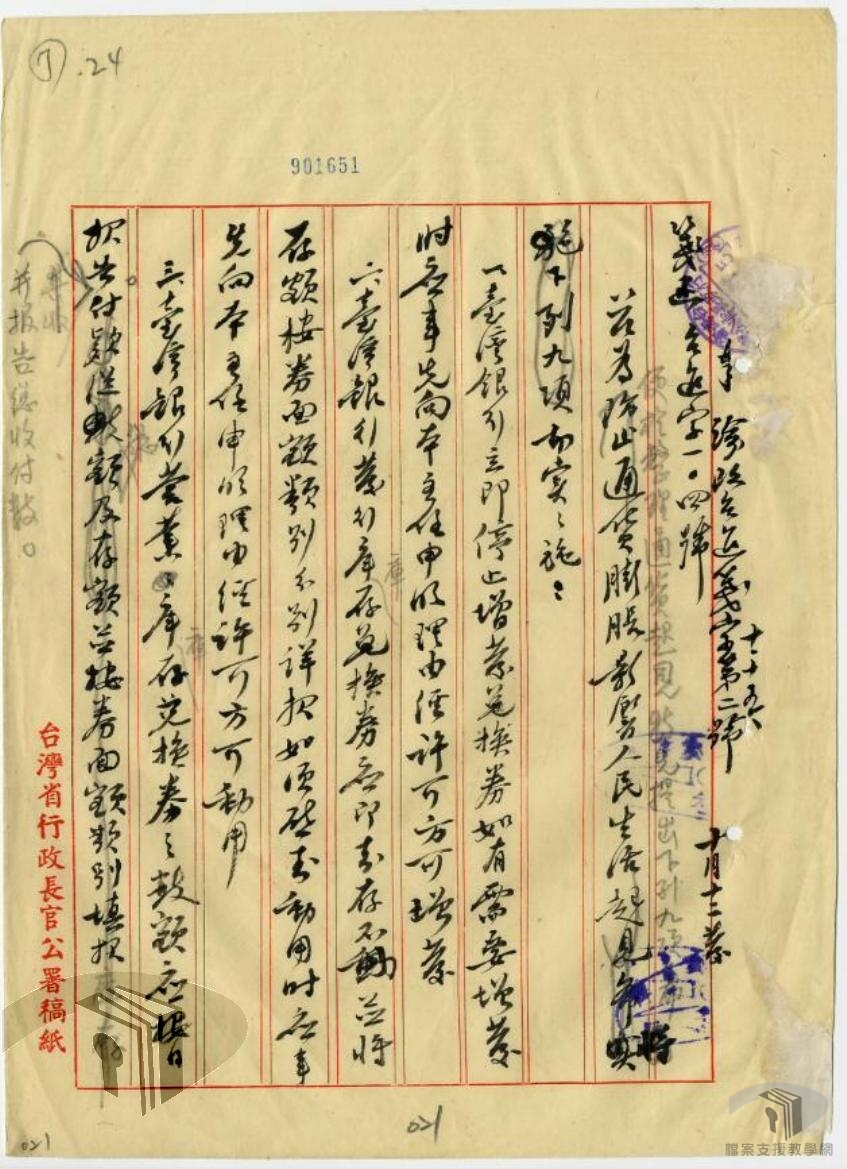 ①.24
901651
事
十、十五
十月十二發
箋函 台進字一〇四號
便於整理通貨起見
提出下列九項
茲為防止通貨膨脹影響人民生活起見希將
下列九項切實之施：
一、臺灣銀行立即停止增發兌換券如有需要增發
時應事先向本主任申明理由經許可方可增發
六臺灣銀行發行庫存兌換券應即封存不動並將
存額按券面額類別分別詳报如須啟封動用時應事
先向本主任申明理由經許可方可動用
三、臺灣銀行營業庫存兌換券之數額應按日
报告付款數額及存額並按券面額類別填报
庫
并报告總收付數。
台灣省行政長官公署稿紙
021
021
檔案支援教學網